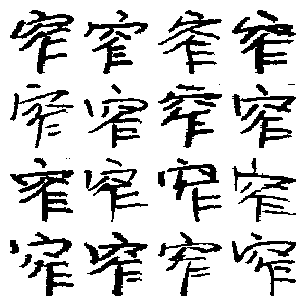 窄窄窄窄
窄窄窄窄
窄窄窄窄
窄窄窄窄